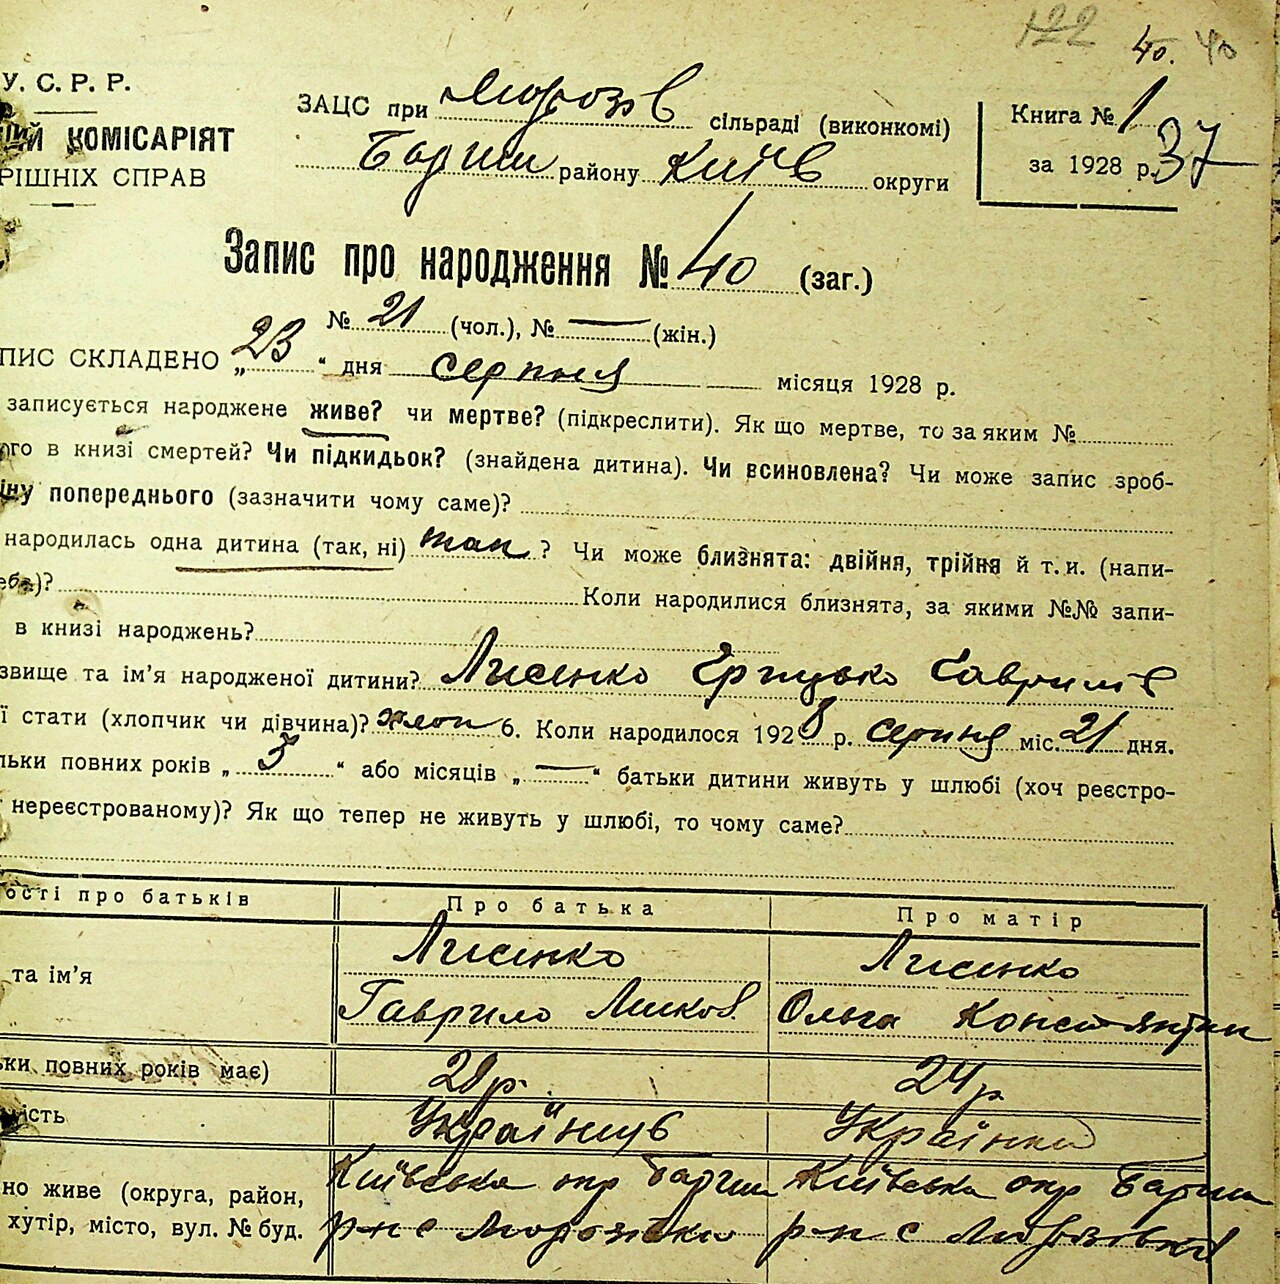 122 40. 40
У. С. Р. Р.
ЗАЦС при Морозів сільраді (виконкомі)
Книга № 1
КОМІСАРІЯТ
Баришп району Київ округи
за 1928 р. 37
РІШНІХ СПРАВ
Запис про народження № 40 (заг.)
№ 21 (чол.), № — (жін.)
ПИС СКЛАДЕНО „23“ дня серпня місяця 1928 р.
записується народжене живе? чи мертве? (підкреслити). Як що мертве, то за яким №
ого в книзі смертей? Чи підкидьок? (знайдена дитина). Чи всиновлена? Чи може запис зроб-
іну попереднього (зазначити чому саме)?
народилась одна дитина (так, ні) так? Чи може близнята: двійня, трійня й т. и. (напи-
еба)? Коли народилися близнята, за якими №№ запи-
в книзі народжень?
звище та ім’я народженої дитини? Лисенко Грицько Гаврилів
ї стати (хлопчик чи дівчина)? хлоп 6. Коли народилося 1928 р. серпня міс. 21 дня.
льки повних років „ 5 “ або місяців „ — “ батьки дитини живуть у шлюбі (хоч реєстро-
нереєстрованому)? Як що тепер не живуть у шлюбі, то чому саме?
ості про батьків Про батька Про матір
Лисенко Лисенко
та ім’я
Гаврило Ольга Констянтин
ьки повних років має) 28 р. 24 р
ність Українець Українка
Київська окр Бариш Київська окр Бариш
но живе (округа, район,
хутір, місто, вул. № буд. р-н с Морозівка р-н с Морозівка